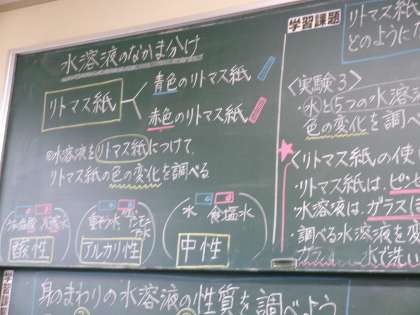 水溶液のなかま分け
リトマス紙
青色のリトマス紙
赤色のリトマス紙
水溶液をリトマス紙につけて、
リトマス紙の色の変化を調べる
酸性
アルカリ性
水 食塩水
中性
学習課題
リトマス紙
どのように
〈実験3〉
・水と5つの水溶液
色の変化を調べ
〈リトマス紙の使い
・リトマス紙は、ピンセ
・水溶液は、ガラスぼ
・調べる水溶液を変
水で洗い
身のまわりの水溶液の性質を調べよう